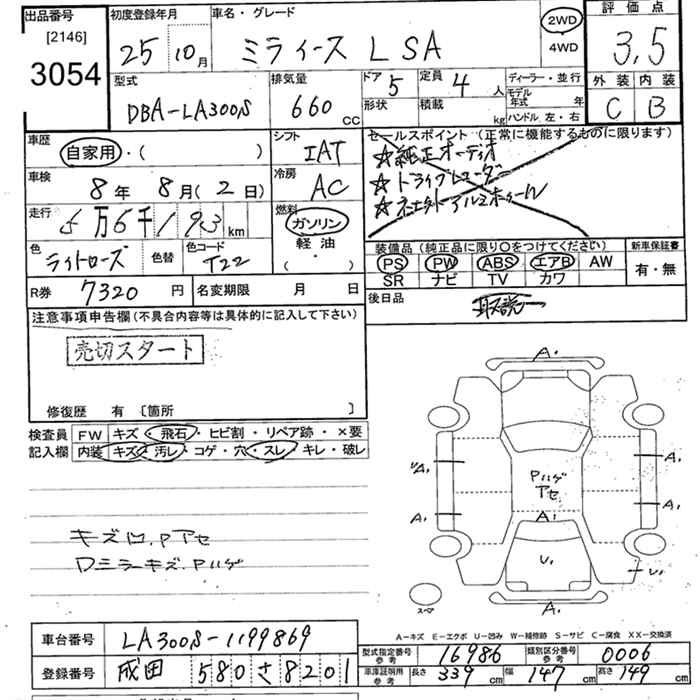 出品番号
[2146]
3054
初度登録年月
25 10月
車名・グレード
ミライース LSA
2WD
4WD
評価点
3,5
外装 内装
C B
型式
DBA-LA300S
排気量
660 CC
ドア 5
定員 4 人
形状
積載 kg
ディーラー・並行
モデル年式 年
ハンドル 左・右
車歴
自家用・( )
シフト
IAT
車検
8年 8月(2日)
冷房
AC
走行
5万6千193 km
燃料
ガソリン
軽油
( ・ )
色
ライトローズ
色替
色コード
T22
R券 7320 円
名変期限 月 日
セールスポイント (正常に機能するものに限ります)
☆純正オーディオ
☆ドライブレコーダー
装備品(純正品に限り○をつけてください)
PS PW ABS エアB AW
SR ナビ TV カワ
新車保証書
有・無
後日品
取説
注意事項申告欄(不具合内容等は具体的に記入して下さい)
売切スタート
修復歴 有 〔箇所 〕
検査員記入欄
FW キズ・飛石・ヒビ割・リペア跡・×要
内装 キズ・汚レ・コゲ・穴・スレ・キレ・破レ
キズ凹.Pアセ
Dミラーキズ.Pハゲ
A.
A.
A.
A.
A.
Pハゲ
アセ
A.
U.
U.
A.
スペア
A-キズ E-エクボ U-凹み W-補修跡 S-サビ C-腐食 XX-交換済
車台番号 LA300S-1199869
登録番号 成田 580 さ 8201
型式指定番号 参考 16986
類別区分番号 参考 0006
車庫証明用 参考 長さ 339 cm 幅 147 cm 高さ 149 cm